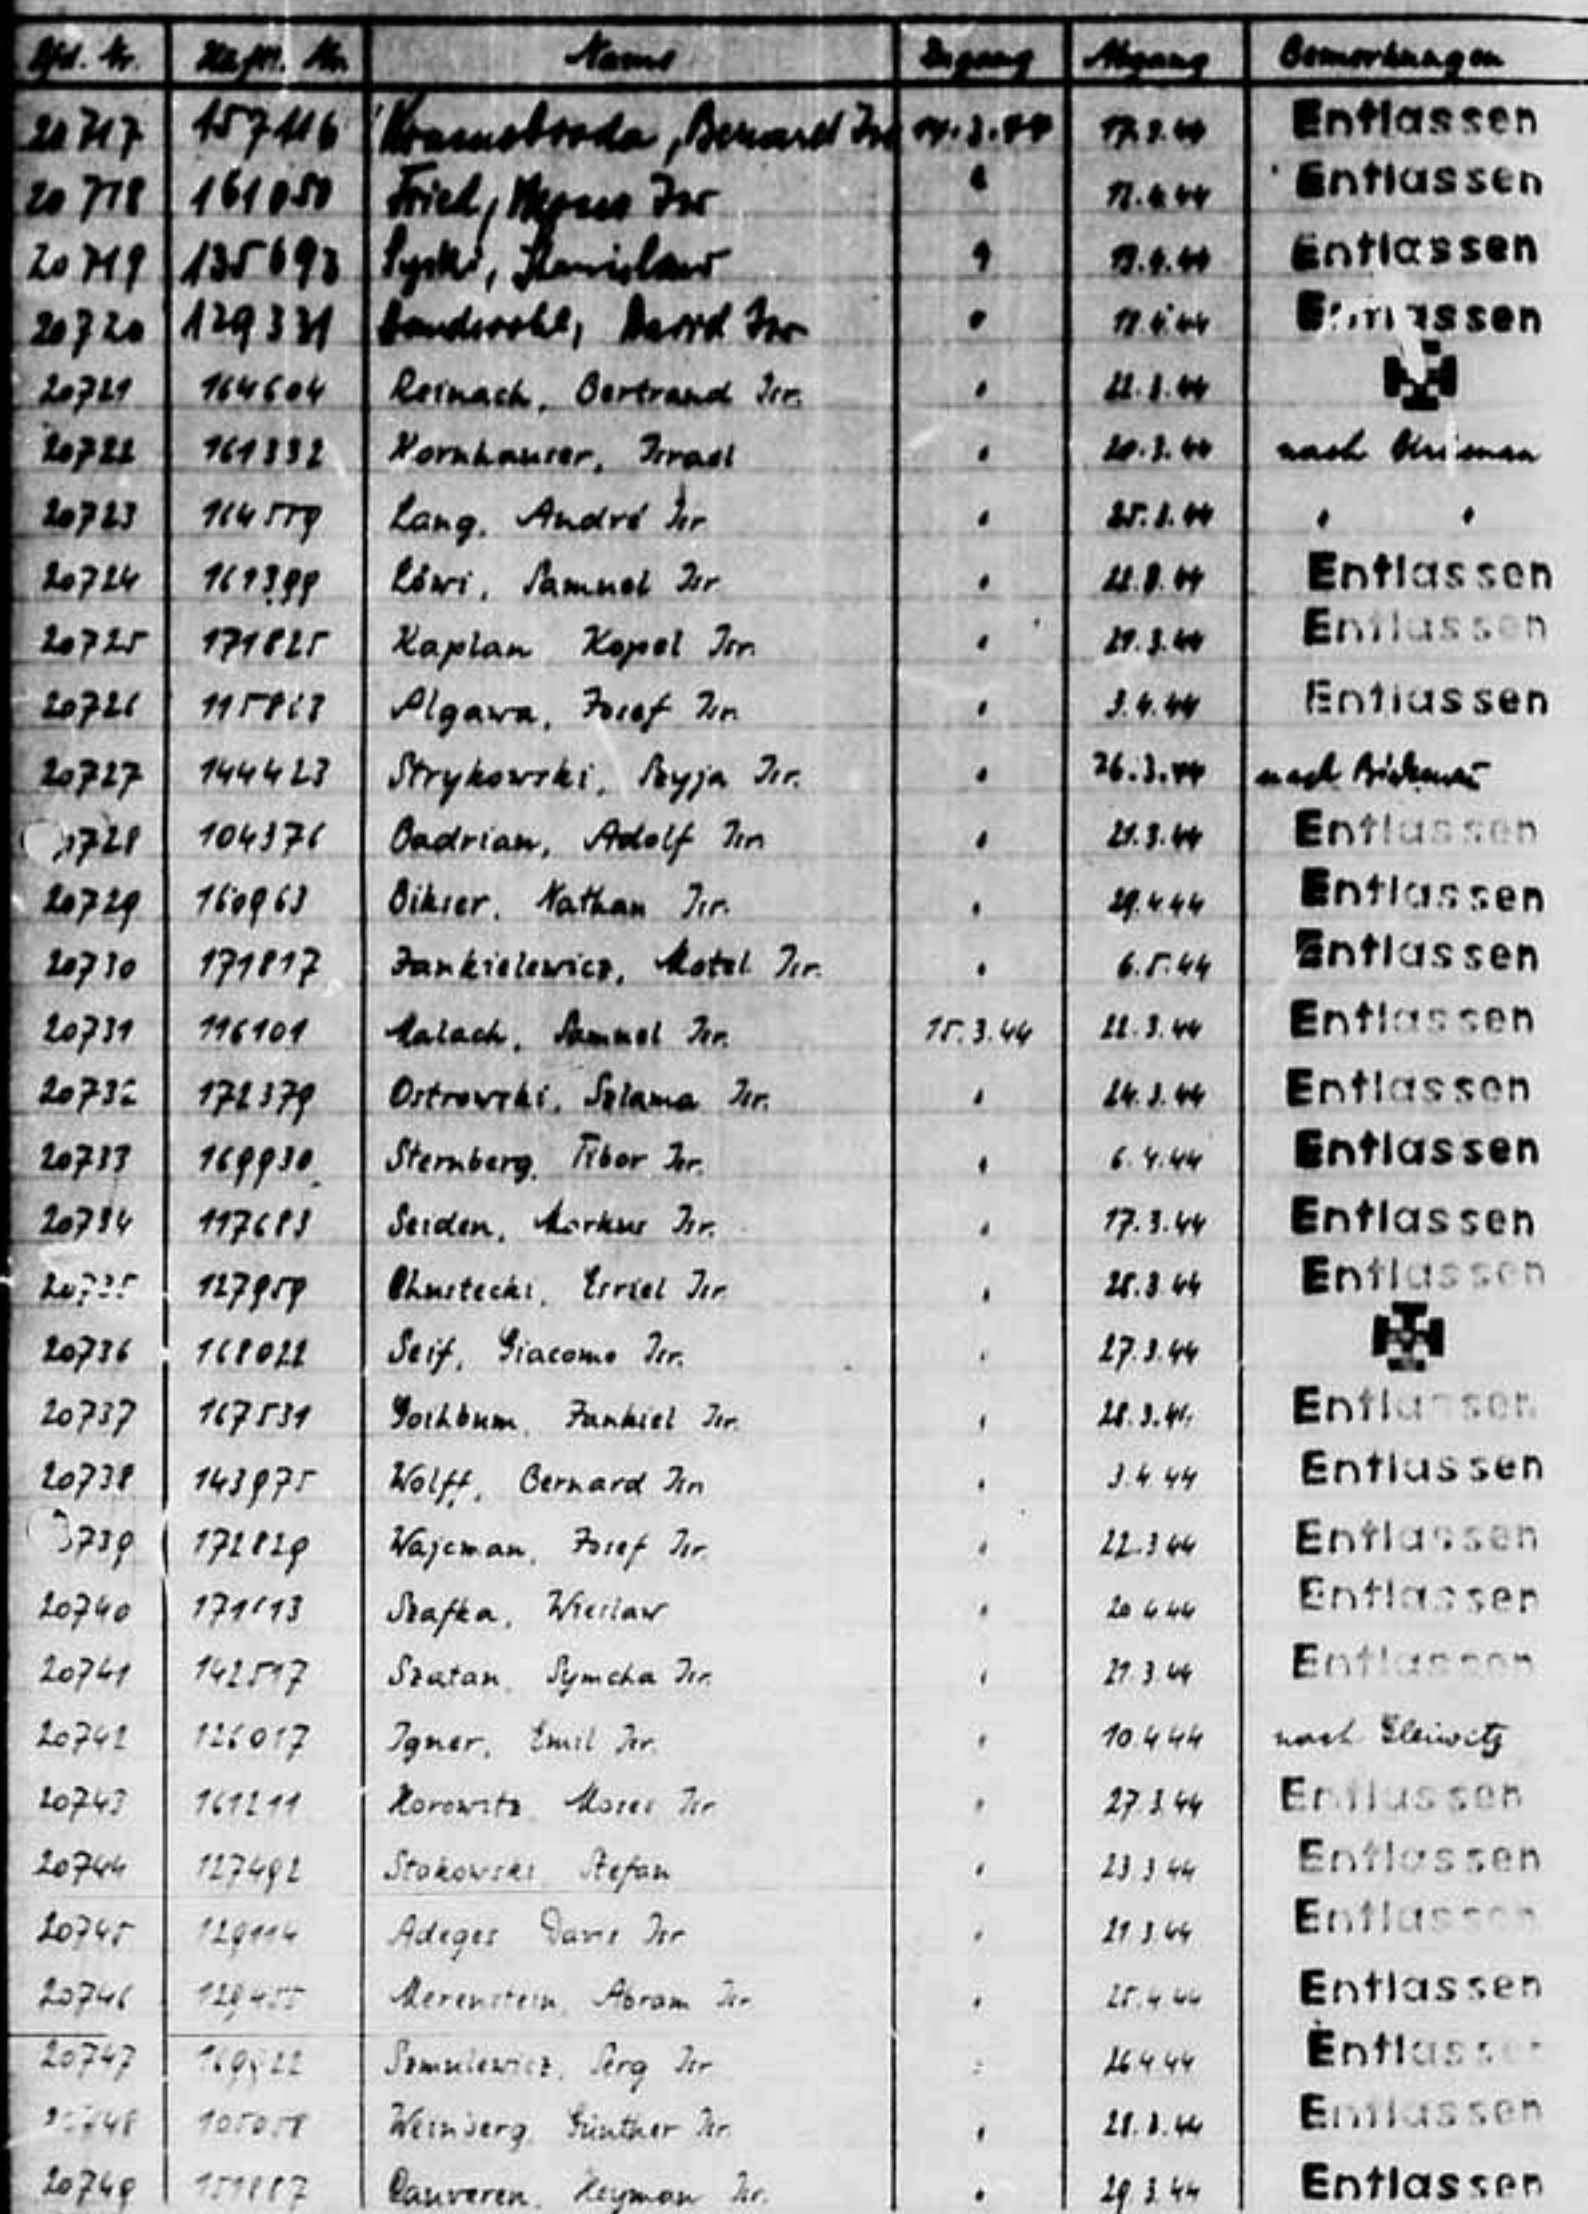 Lfd. Nr. Häftl. Nr. Name Zugang Abgang Bemerkungen
20717 157116 Bernard Isr 14.3.44 17.3.44 Entlassen
20718 161050 Fried, Isr " Entlassen
20719 135693 Stanislaus " Entlassen
20720 129331 David Isr " Entlassen
20721 164604 Reinach, Bertrand Isr. " 22.3.44
20722 161332 Kornhauser, Israel " 20.3.44 nach
20723 164579 Lang, André Isr. " 25.3.44 " "
20724 161399 Löwi, Samuel Isr. " Entlassen
20725 171825 Kaplan Kopel Isr. " 21.3.44 Entlassen
20726 115863 Algawa, Josef Isr. " 3.4.44 Entlassen
20727 144423 Strykowski, Szyja Isr. " 26.3.44 nach Birkenau
20728 104376 Badrian, Adolf Isr. " 21.3.44 Entlassen
20729 160963 Bikser, Nathan Isr. " 29.4.44 Entlassen
20730 171817 Jankielewicz, Motel Isr. " 6.5.44 Entlassen
20731 116101 Malach, Samuel Isr. 15.3.44 22.3.44 Entlassen
20732 172379 Ostrowski, Szlama Isr. " 24.3.44 Entlassen
20733 169930 Sternberg, Tibor Isr. " 6.4.44 Entlassen
20734 117683 Seiden, Markus Isr. " 17.3.44 Entlassen
20735 127959 Chustecki, Esriel Isr. " 28.3.44 Entlassen
20736 168022 Seif, Giacomo Isr. " 27.3.44
20737 167531 Jankiel Isr. " 28.3.44 Entlassen
20738 143975 Wolff, Bernard Isr. " 3.4.44 Entlassen
20739 172829 Wajcman, Josef Isr. " 22.3.44 Entlassen
20740 171613 Szafka, Wieslaw " Entlassen
20741 142517 Szatan, Symcha Isr. " 21.3.44 Entlassen
20742 126017 Igner, Emil Isr. " 10.4.44 nach Gleiwitz
20743 161211 Horowitz, Moses Isr. " 27.3.44 Entlassen
20744 127492 Stokowski Stefan " 23.3.44 Entlassen
20745 129114 Adeges Isr. " 21.3.44 Entlassen
20746 129455 Merenstein, Abram Isr. " 25.4.44 Entlassen
20747 Szmulewicz, Serg Isr. " 26.4.44 Entlassen
20748 105058 Weinberg, Günther Isr. " 28.3.44 Entlassen
20749 151887 Cauveren, Heyman Isr. " 29.3.44 Entlassen